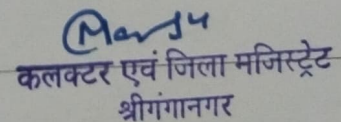 कलक्टर एवं जिला मजिस्ट्रेट
श्रीगंगानगर